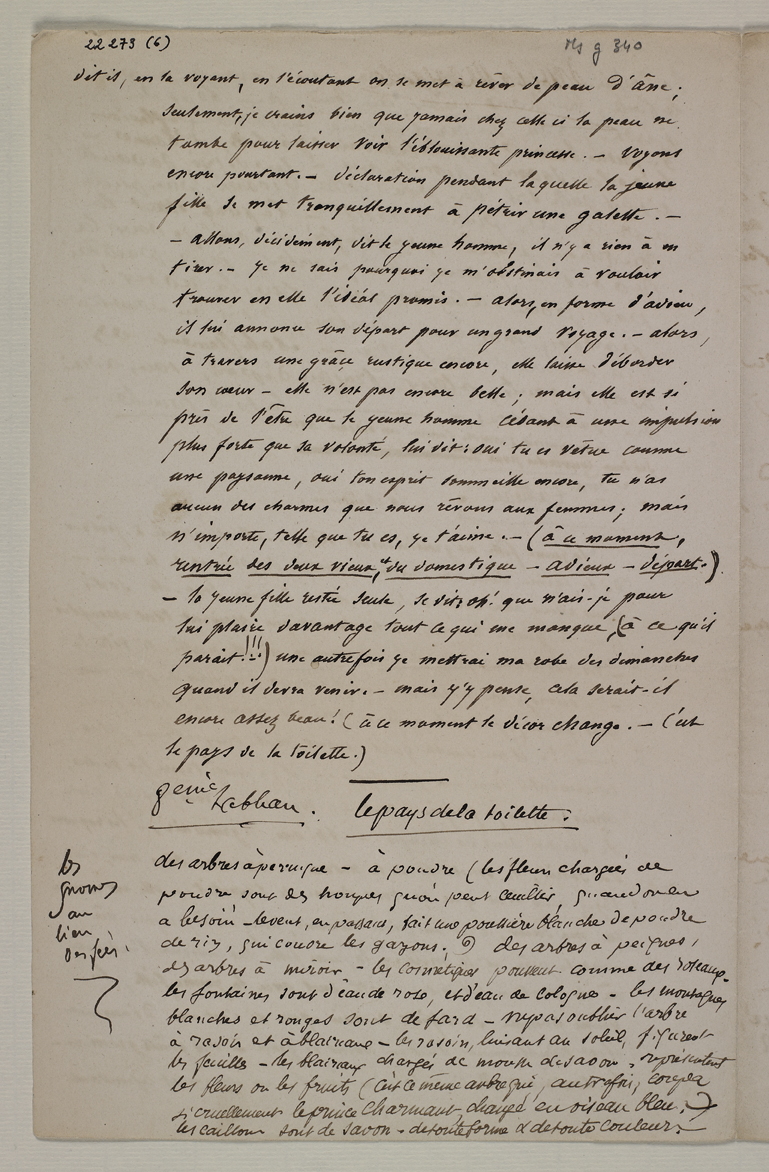 22273 (6)
Ms g 340
dit il, en la voyant, en l'écoutant on se met à rêver de peau d'âne ;
seulement, je crains bien que jamais chez celle ci la peau ne
tombe pour laisser voir l'éblouissante princesse. — Voyons
encore pourtant. — déclaration pendant laquelle la jeune
fille se met tranquillement à pétrir une galette. —
— allons, décidement, dit le jeune homme, il n'y a rien à en
tirer. — je ne sais pourquoi je m'obstinais à vouloir
trouver en elle l'idéal promis. — alors, en forme d'adieu,
il lui annonce son départ pour un grand voyage. — alors,
à travers une grâce rustique encore, elle laisse déborder
son cœur — elle n'est pas encore belle ; mais elle est si
près de l'être que le jeune homme cédant à une impulsion
plus forte que sa volonté, lui dit : oui tu es vêtue comme
une paysanne, oui ton esprit sommeille encore, tu n'as
aucun des charmes que nous rêvons aux femmes ; mais
n'importe, telle que tu es, je t'aime. — (à ce moment,
rentrée des deux vieux, et du domestique — adieux — départ.)
— la jeune fille restée seule, se dit : oh! que n'ais-je pour
lui plaire davantage tout ce qui me manque, (à ce qu'il
parait !!!) une autre fois je mettrai ma robe des dimanches
quand il devra venir. — mais j'y pense, cela serait-il
encore assez beau ! (à ce moment le décor change. — C'est
le pays de la toilette.)
8eme Tableau. le pays de la toilette :
les
gnomes
au
lieu
des fées.
des arbres à perruque — à poudre (les fleurs chargées de
poudre sont des houpes qu'on peut cueillir, quand on en
a besoin — le vent, en passant, fait une poussière blanche de poudre
de riz, qui couvre les gazons. ) des arbres à peignes,
des arbres à miroir — les cosmétiques poussent comme des roseaux —
les fontaines sont d'eau de rose, et d'eau de Cologne — les montagnes
blanches et rouges sont de fard — ne pas oublier l'arbre
à rasoir et à blaireaux — les rasoirs, luisant au soleil, figurent
les feuilles — les blaireaux chargés de mousse de savon, représentent
les fleurs ou les fruits (c'est le même arbre qui, autrefois, coupa
si cruellement le prince Charmant, changé en oiseau bleu.)
les cailloux sont de savon — de toute forme & de toute couleur.